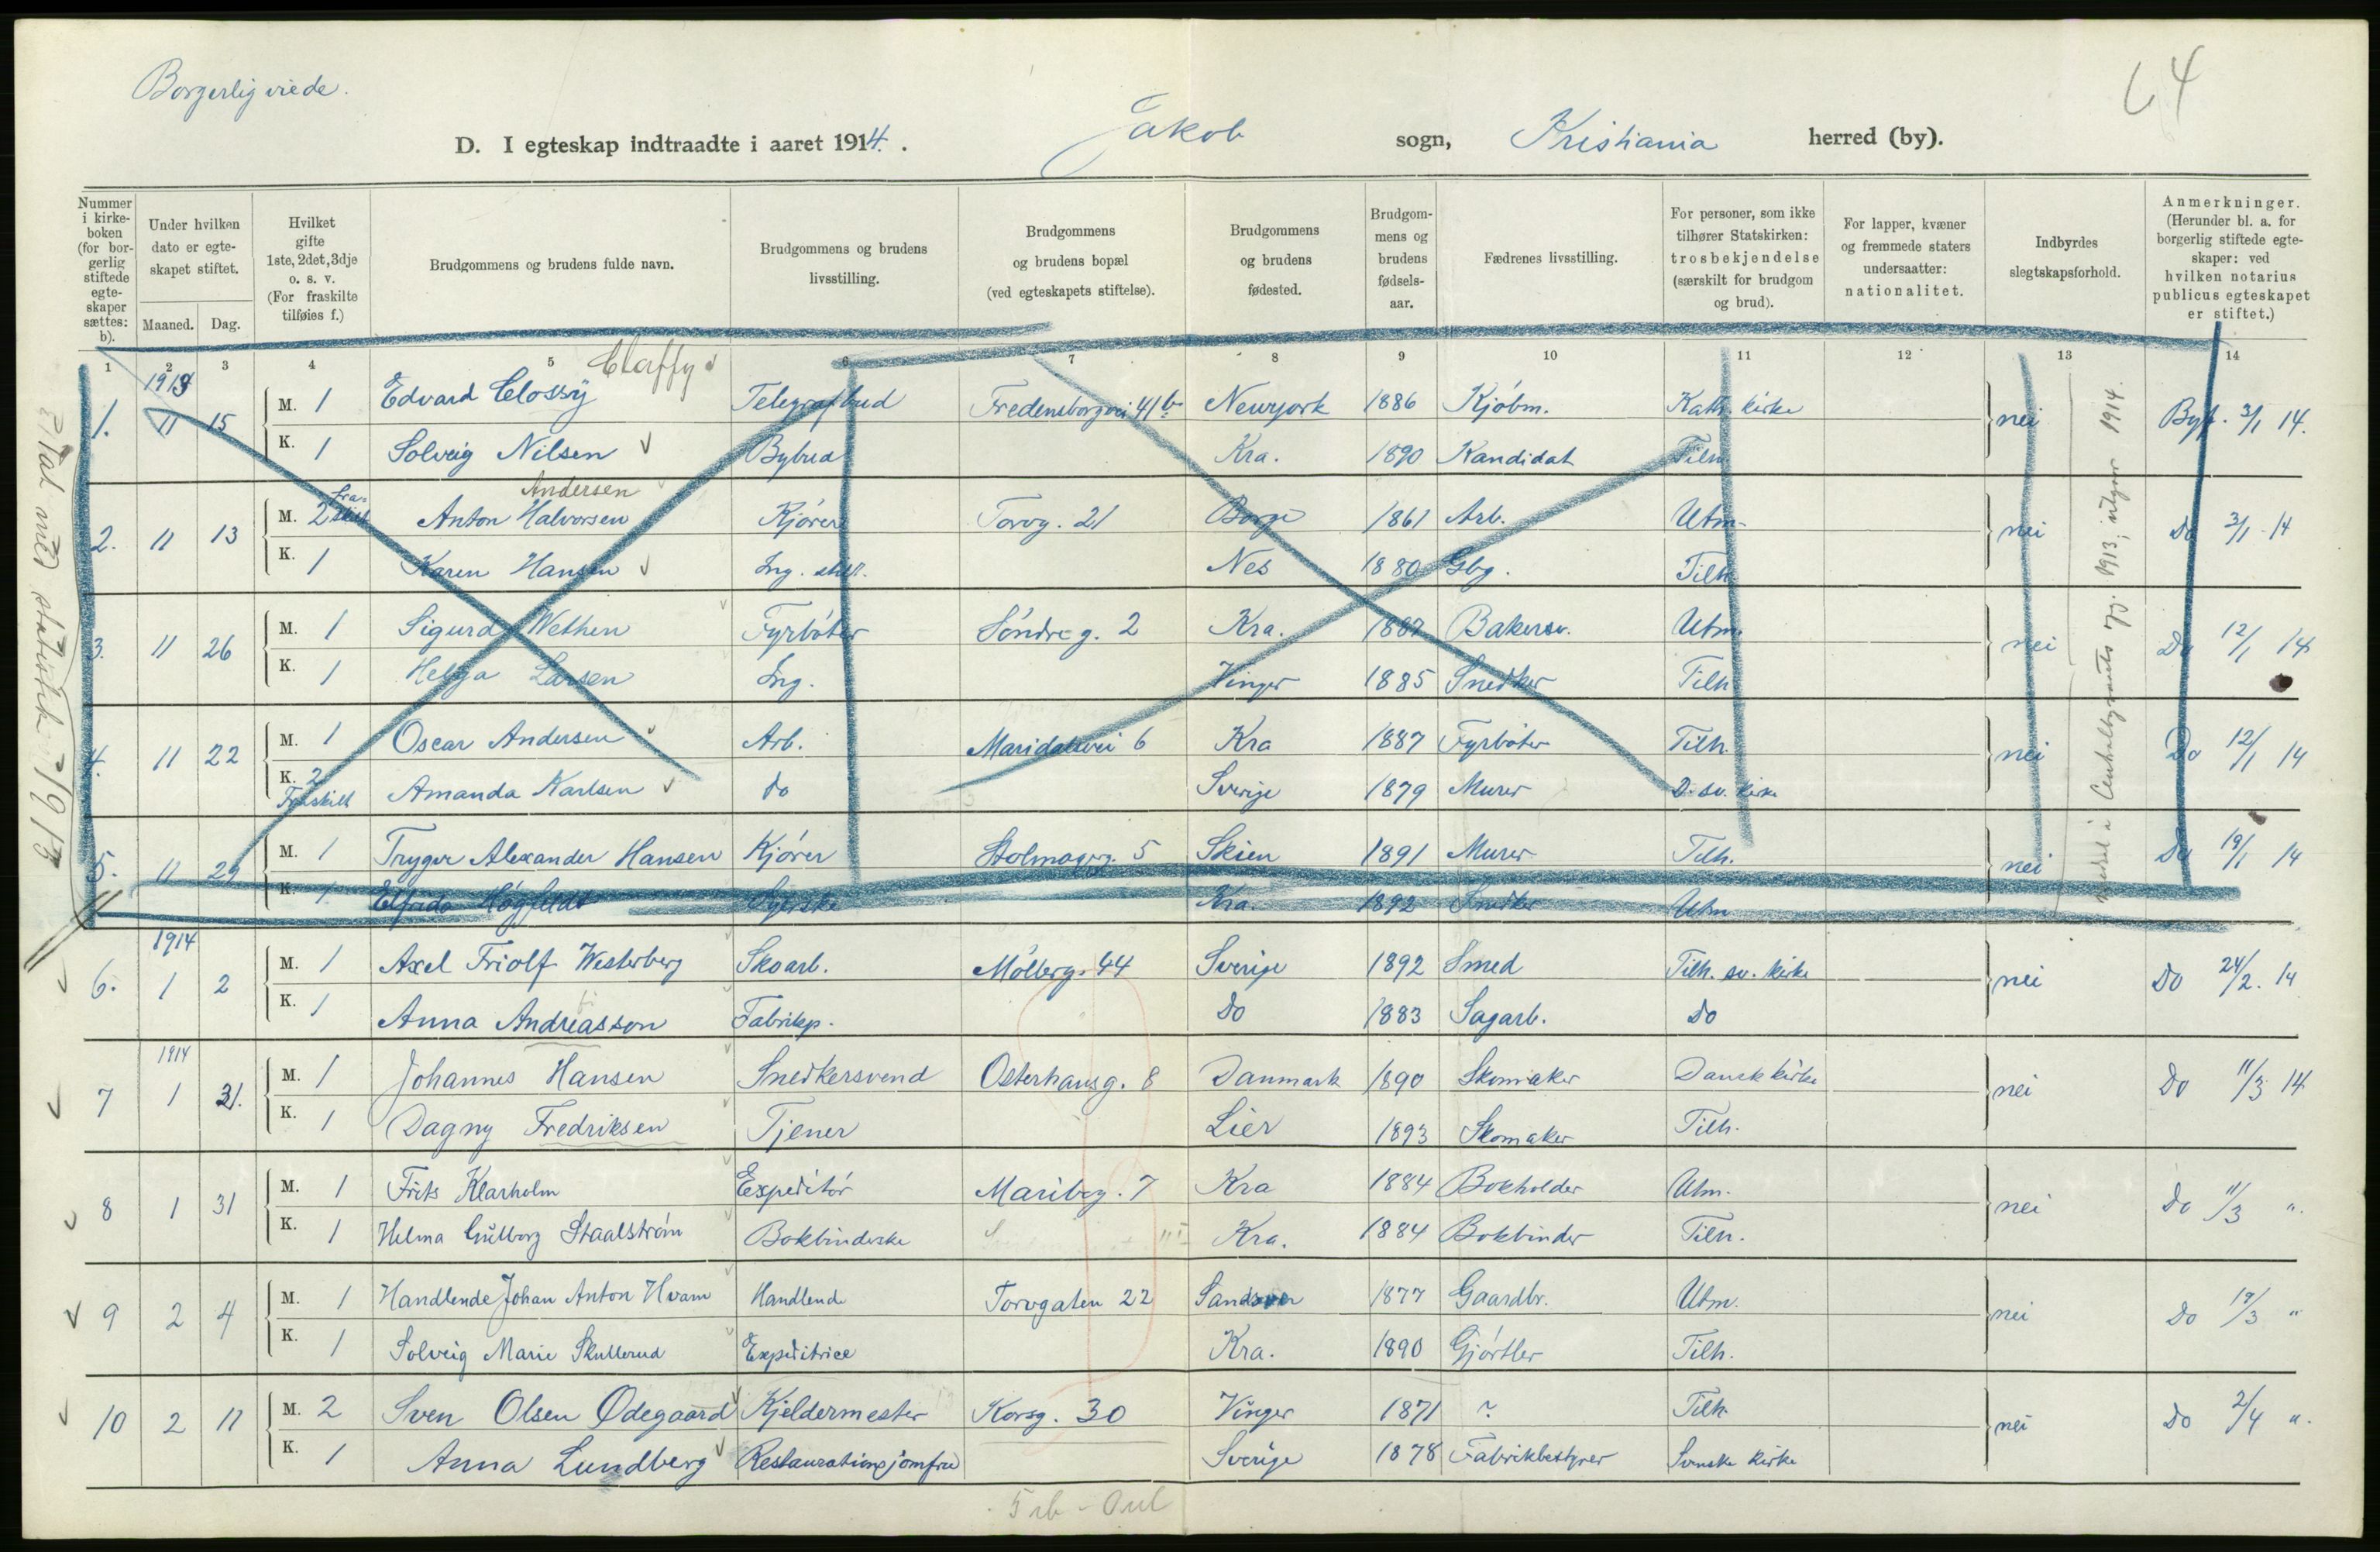 Borgerlig viede.
64
D. I egteskap indtraadte i aaret 1914. Jakob sogn, Kristiania herred (by).
Nummer i kirkeboken (for borgerlig stiftede egteskaper sættes: b).
Under hvilken dato er egteskapet stiftet.
Maaned. Dag.
Hvilket gifte 1ste, 2det, 3dje o. s. v. (For fraskilte tilføies f.)
Brudgommens og brudens fulde navn.
Brudgommens og brudens livsstilling.
Brudgommens og brudens bopæl (ved egteskapets stiftelse).
Brudgommens og brudens fødested.
Brudgommens og brudens fødselsaar.
Fædrenes livsstilling.
For personer, som ikke tilhører Statskirken: trosbekjendelse (særskilt for brudgom og brud).
For lapper, kvæner og fremmede staters undersaatter: nationalitet.
Indbyrdes slegtskapsforhold.
Anmerkninger. (Herunder bl. a. for borgerlig stiftede egteskaper: ved hvilken notarius publicus egteskapet er stiftet.)
1 2 3 4 5 6 7 8 9 10 11 12 13 14
Claffy
1913
1. 11 15 M. 1 Edvard Clossy Telegrafbud Fredensborgvei 41b Newyork 1886 Kjøbm. Kath. kirke nei Byf. 3/1 14.
K. 1 Solveig Nilsen Bybud Kra. 1890 Kandidat Tilh.
Andersen
2. 11 13 M. 2 fraskilt Anton Halvorsen Kjører Torvg. 21 Borge 1861 Arb. Utm. nei Do 3/1 14
K. 1 Karen Hansen Ing. still. Nes 1880 Gbg. Tilh.
3. 11 26 M. 1 Sigurd Wethen Fyrbøter Søndre g. 2 Kra. 1887 Bakersv. Utm. nei Do 12/1 14
K. 1 Helga Larsen Ing. Vinger 1885 Snedker Tilh
4. 11 22 M. 1 Oscar Andersen Arb. Maridalsvei 6 Kra 1887 Fyrbøter Tilh. nei Do 12/1 14
K. 2 Fraskilt Amanda Karlsen do Sverige 1879 Murer D. sv. kirke
5. 11 29 M. 1 Trygve Alexander Hansen Kjører Stolmagerg. 5 Skien 1891 Murer Tilh. nei Do 19/1 14
K. 1 Elfrida Høgfeldt Syerske Kra. 1892 Snedker Utm
1914
6. 1 2 M. 1 Axel Friolf Westerberg Skoarb. Møllerg. 44 Sverige 1892 Smed Tilh. sv. kirke nei Do 24/2. 14
K. 1 Anna Andreasson Fabrikp. Do 1883 Sagarb. Do
1914
7 1 31. M. 1 Johannes Hansen Snedkersvend Osterhausg. 8 Danmark 1890 Skomaker Dansk kirke nei Do 11/3 14
K. 1 Dagny Fredriksen Tjener Lier 1893 Skomaker Tilh.
8 1 31 M. 1 Frits Klarholm Expeditør Maribog. 7 Kra 1884 Bokholder Utm. nei Do 11/3 ".
K. 1 Helma Gullborg Staalstrøm Bokbinderske Kra. 1884 Bokbinder Tilh.
9 2 4 M. 1 Handlende Johan Anton Hvam Handlende Torvgaten 22 Sandsvær 1877 Gaardbr. Utm. nei Do 17/3 "
K. 1 Solveig Marie Skullerud Expeditrice Kra. 1890 Gjørtler Tilh.
10 2 11 M. 2 Sven Olsen Ødegaard Kjeldermester Korsg. 30 Vinger 1871 ? Tilh. nei Do 2/4 ".
K. 1 Anna Lundberg Restaurationsjomfru Sverige 1878 Fabrikbestyrer Svenske kirke
Tat med statistik 1913
i Centralbyraaets 1913; utgaar 1914.